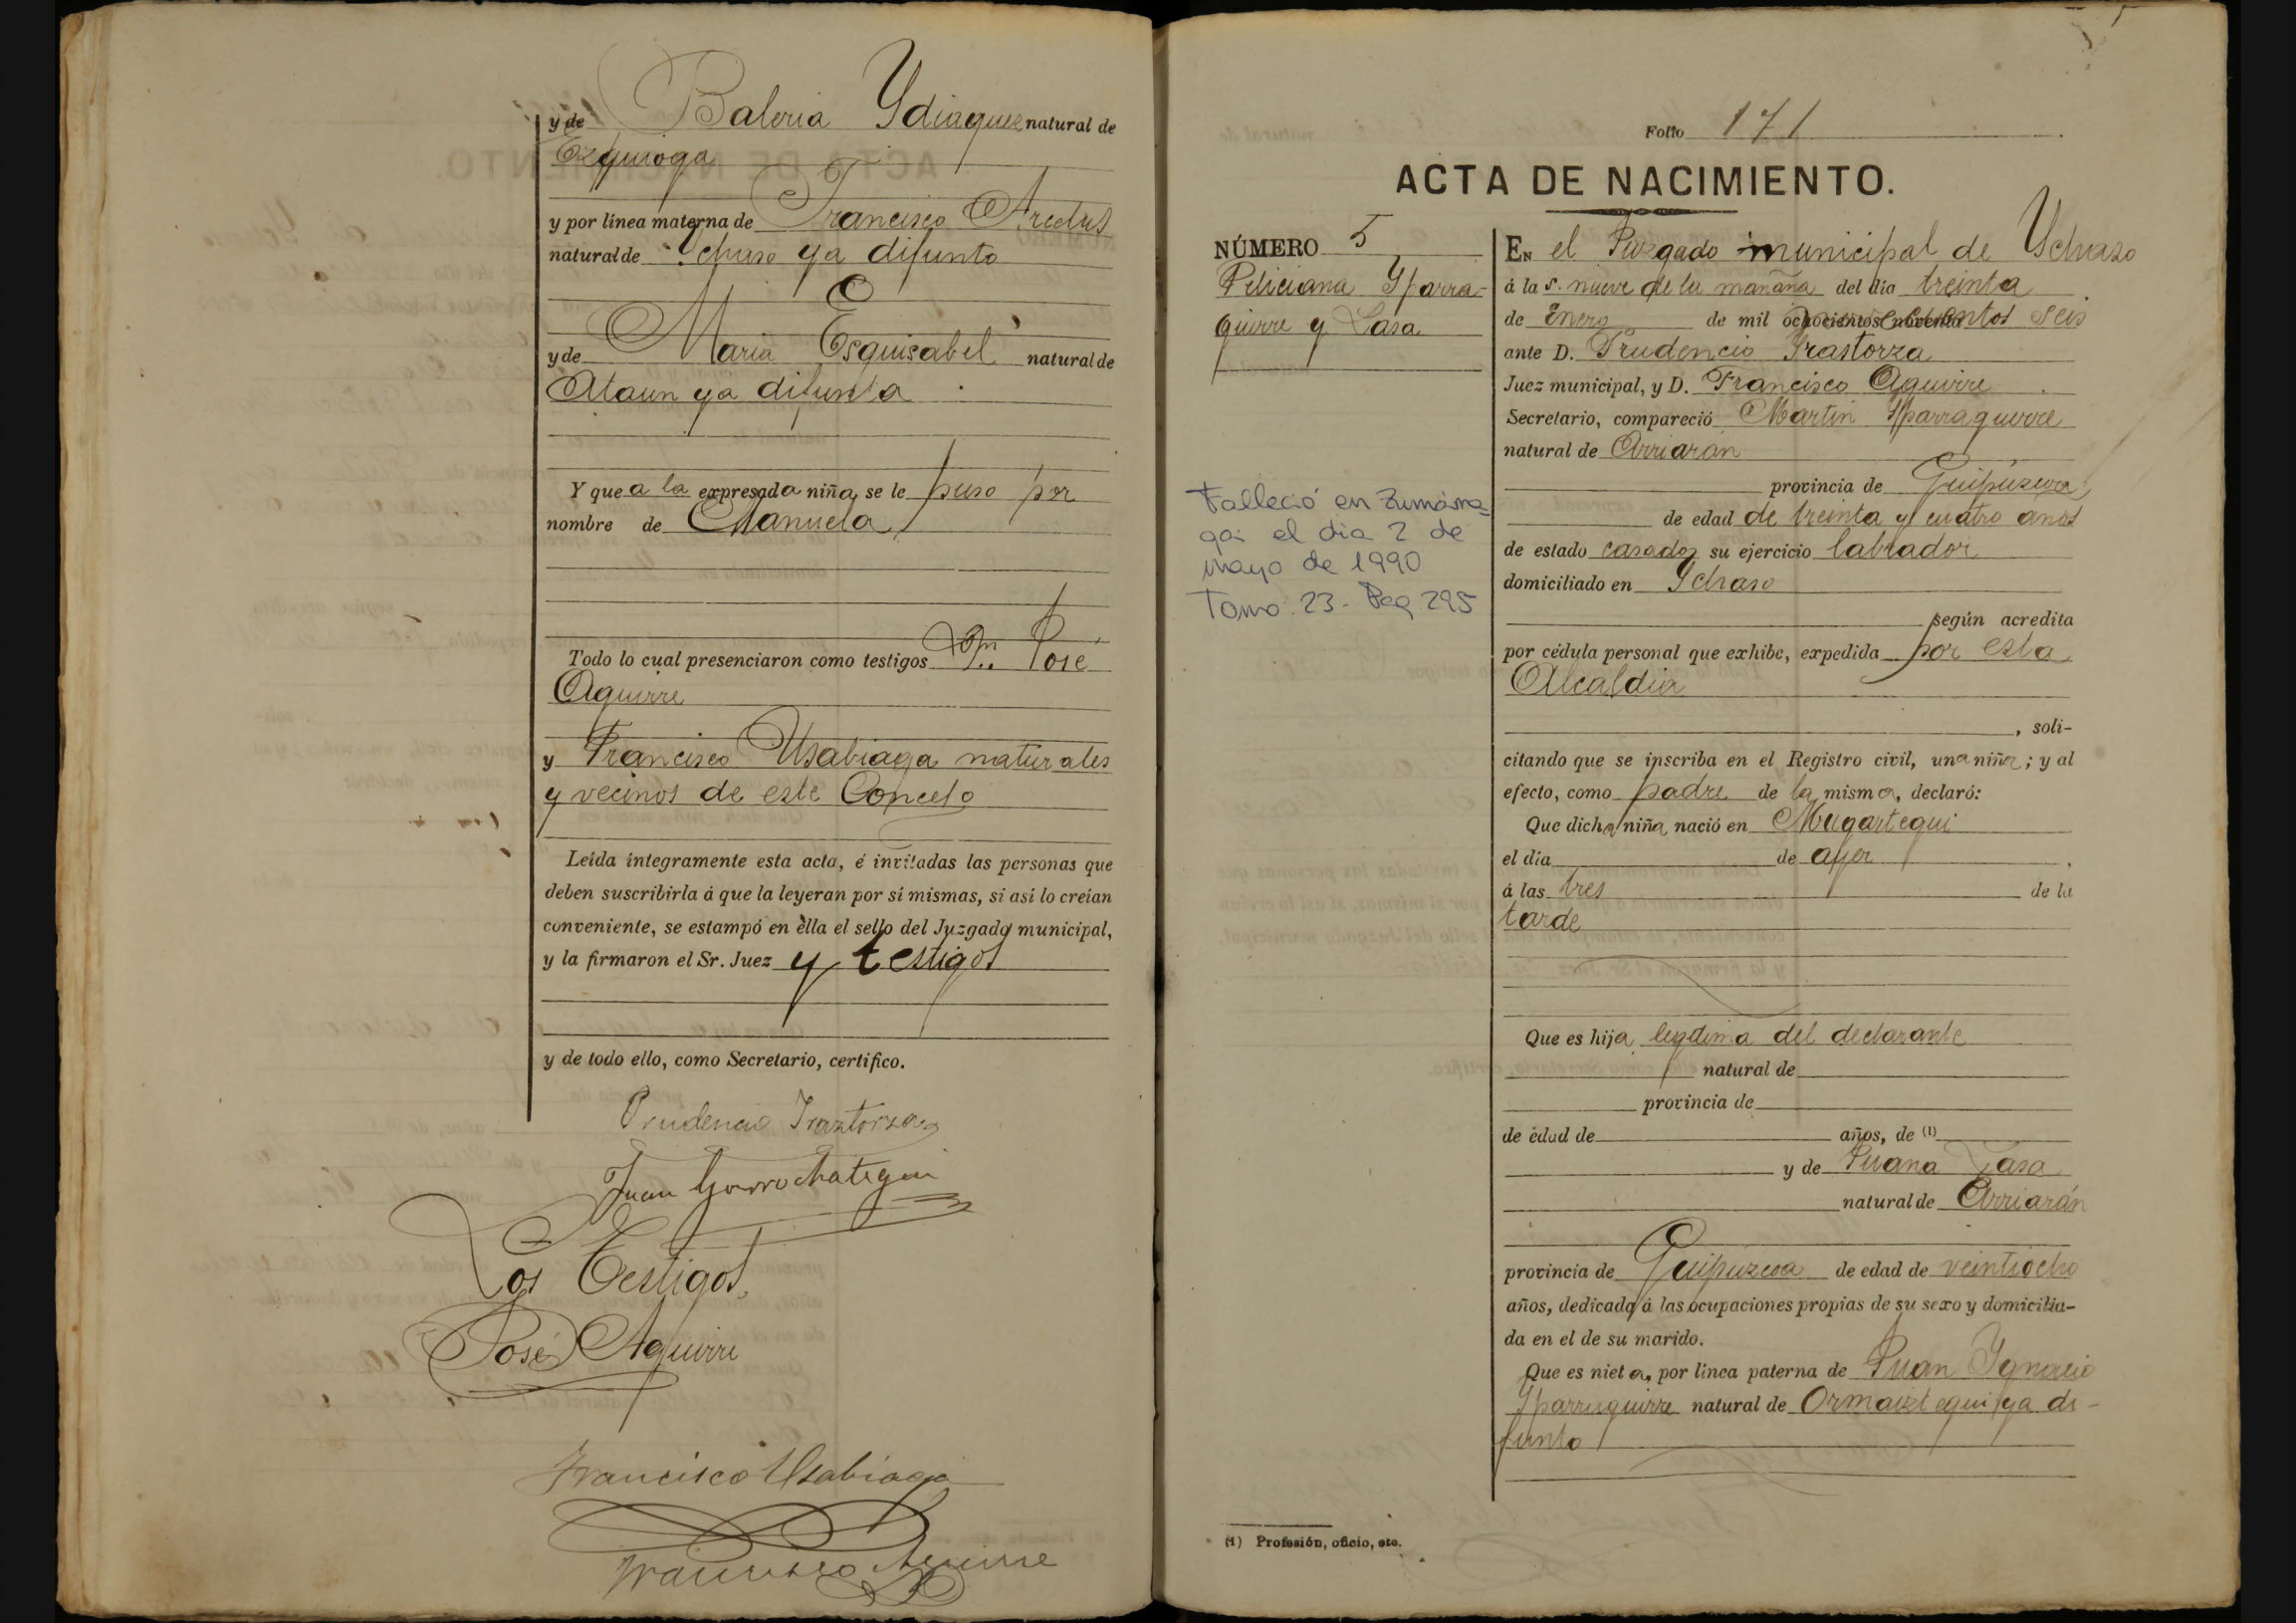 y de Baleria Ydiaquez natural de
Ezquioga
y por línea materna de Francisco Arectus
natural de Ychaso ya difunto
y de Maria Esquisabel natural de
Ataun ya difunta
Y que a la expresada niña se le puso por
nombre de Manuela
Todo lo cual presenciaron como testigos Dn. José
Aguirre
y Francisco Usabiaga naturales
y vecinos de este Concejo
Leída íntegramente esta acta, é invitadas las personas que
deben suscribirla á que la leyeran por sí mismas, si así lo creían
conveniente, se estampó en ella el sello del Juzgado municipal,
y la firmaron el Sr. Juez y testigos
y de todo ello, como Secretario, certifico.
Prudencio Iraztorza
Juan Gorrochategui
Los Testigos
José Aguirre
Francisco Usabiaga
Francisco Aguirre
Folio 171
ACTA DE NACIMIENTO.
NÚMERO 5
Feliciana Yparra-
guirre y Lasa
Falleció en Zumárra-
ga el dia 2 de
mayo de 1990
Tomo 23 - Pag 295
En el Juzgado municipal de Ychaso
á las nueve de la mañana del día treinta
de Enero de mil ochocientos noventa novecientos seis
ante D. Prudencio Yrastorza
Juez municipal, y D. Francisco Aguirre
Secretario, compareció Martin Yparraguirre
natural de Arriaran
provincia de Guipúzcoa
de edad de treinta y cuatro años
de estado casado, su ejercicio labrador
domiciliado en Ychaso
según acredita
por cédula personal que exhibe, expedida por esta
Alcaldia
, soli-
citando que se inscriba en el Registro civil, una niña; y al
efecto, como padre de la misma, declaró:
Que dicha niña nació en Mugartegui
el día de ayer
á las tres de la
tarde
Que es hija legitima del declarante
natural de
provincia de
de edad de años, de (1)
y de Juana Lasa
natural de Arriarán
provincia de Guipúzcoa de edad de veintiocho
años, dedicada á las ocupaciones propias de su sexo y domicilia-
da en el de su marido.
Que es nieta, por línea paterna de Juan Ygnacio
Yparraguirre natural de Ormaiztegui ya di-
funto
(1) Profesión, oficio, etc.